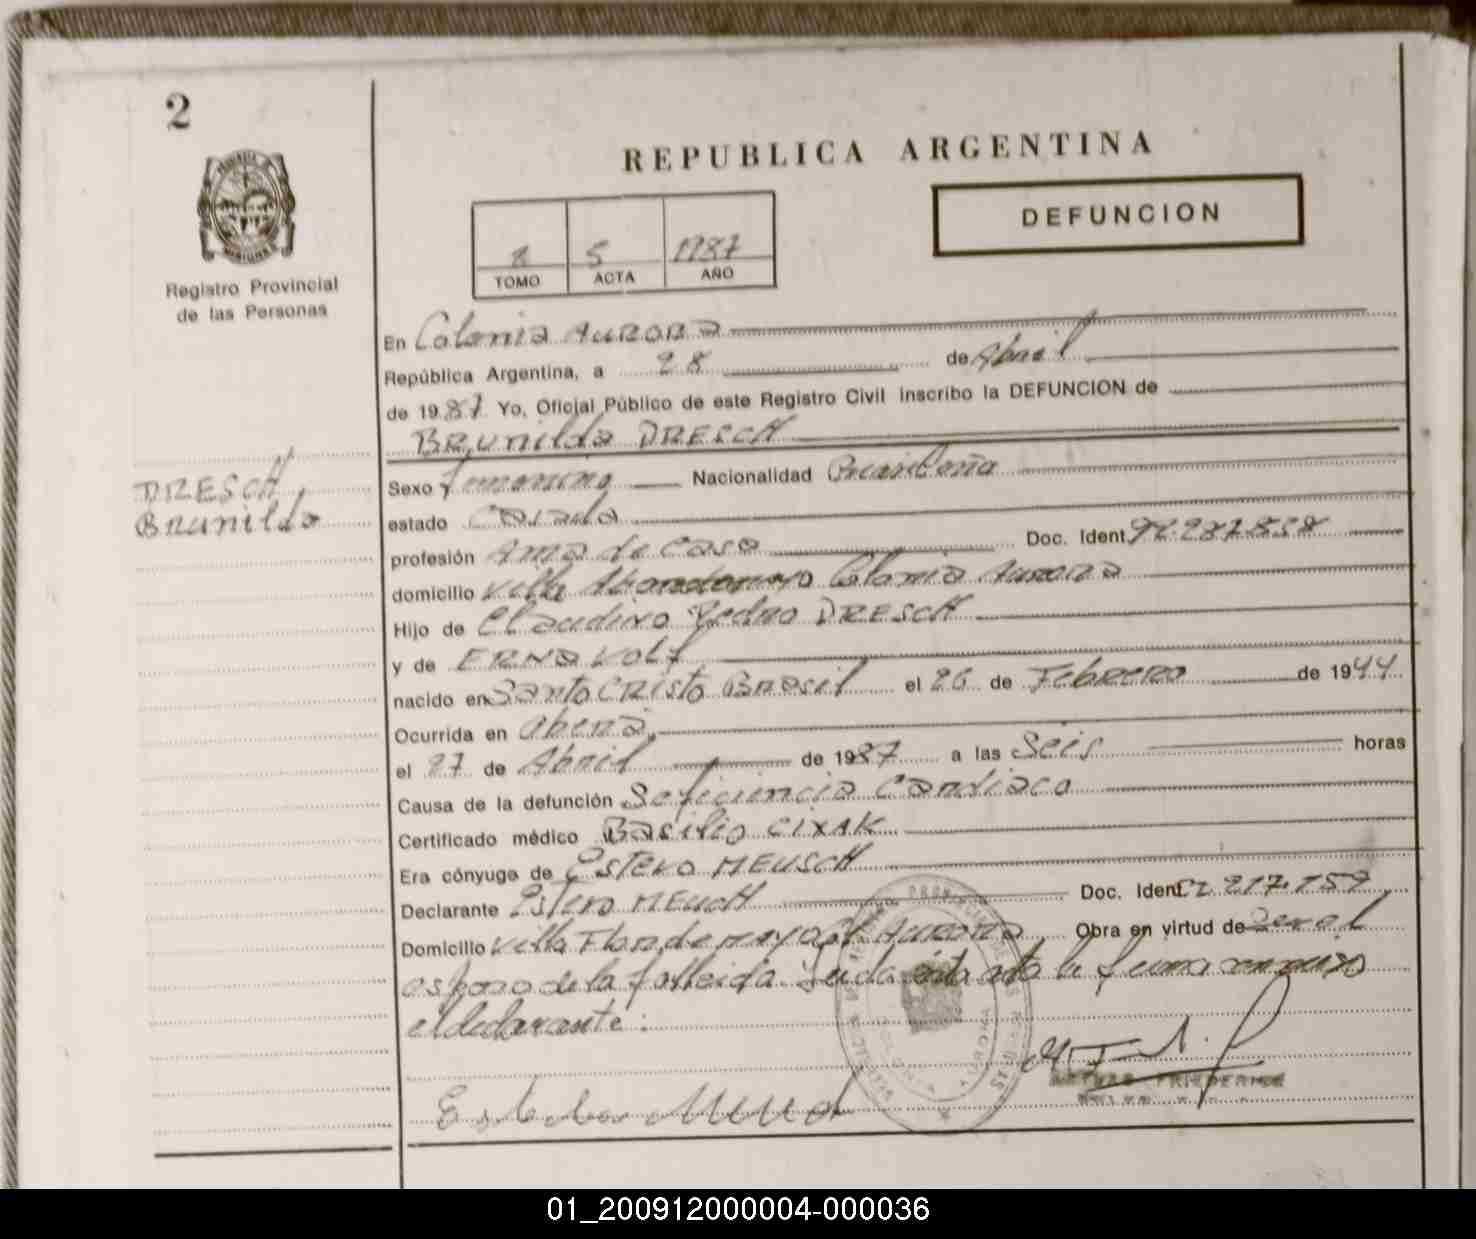 2
REPUBLICA ARGENTINA
DEFUNCION
5 1987
TOMO ACTA AÑO
Registro Provincial
de las Personas
En Colonia Aurora
República Argentina, a 28 de Abril
de 1987 Yo, Oficial Público de este Registro Civil inscribo la DEFUNCION de
Brunilda DRESCH
DRESCH
Brunilda
Sexo femenino Nacionalidad Brasileña
estado Casada
profesión Ama de Casa Doc. Ident
domicilio Villa Colonia Aurora
Hijo de Claudino Pedro DRESCH
y de ERNA Volf
nacido en Santo CRisto Brasil el 26 de Febrero de 1944
Ocurrida en
el 27 de Abril de 1987 a las Seis horas
Causa de la defunción Soficiencia Cardiaca
Certificado médico Basilio CIXAK
Era cónyuge de Estevo MEUSCH
Declarante Estevo Doc. Ident 217.159
Domicilio Villa Flor de mayo Col. Aurora Obra en virtud de
esposo de la
el declarante: